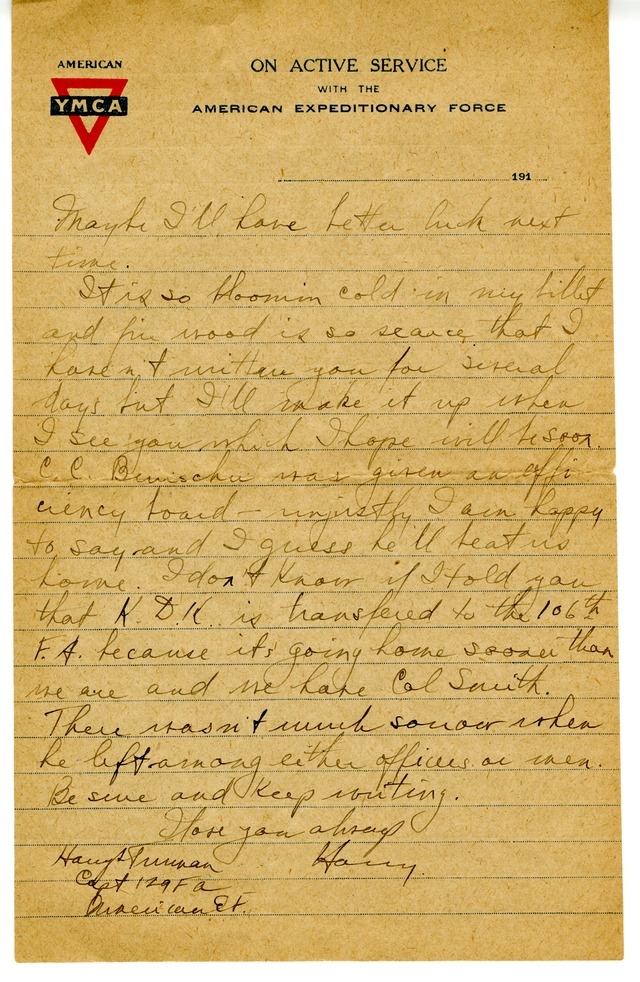 AMERICAN
YMCA
ON ACTIVE SERVICE
WITH THE
AMERICAN EXPEDITIONARY FORCE
191
Maybe I'll have better luck next
time.
It is so bloomin cold in my billet
and fire wood is so scarce that I
haven't written you for several
days but I'll make it up when
I see you which I hope will be soon.
C.C. was given an effi
ciency board - unjustly I am happy
to say and I guess he'll beat us
home. I don't know if I told you
that K.D.K. is transfered to the 106th
F.A. because its going home sooner than
we are and we have Col Smith.
There wasn't much sorrow when
he left among either officers or men.
Be sure and keep writing.
I love you always
Harry.
Harry S Truman
Capt 129 F A
American E.F.